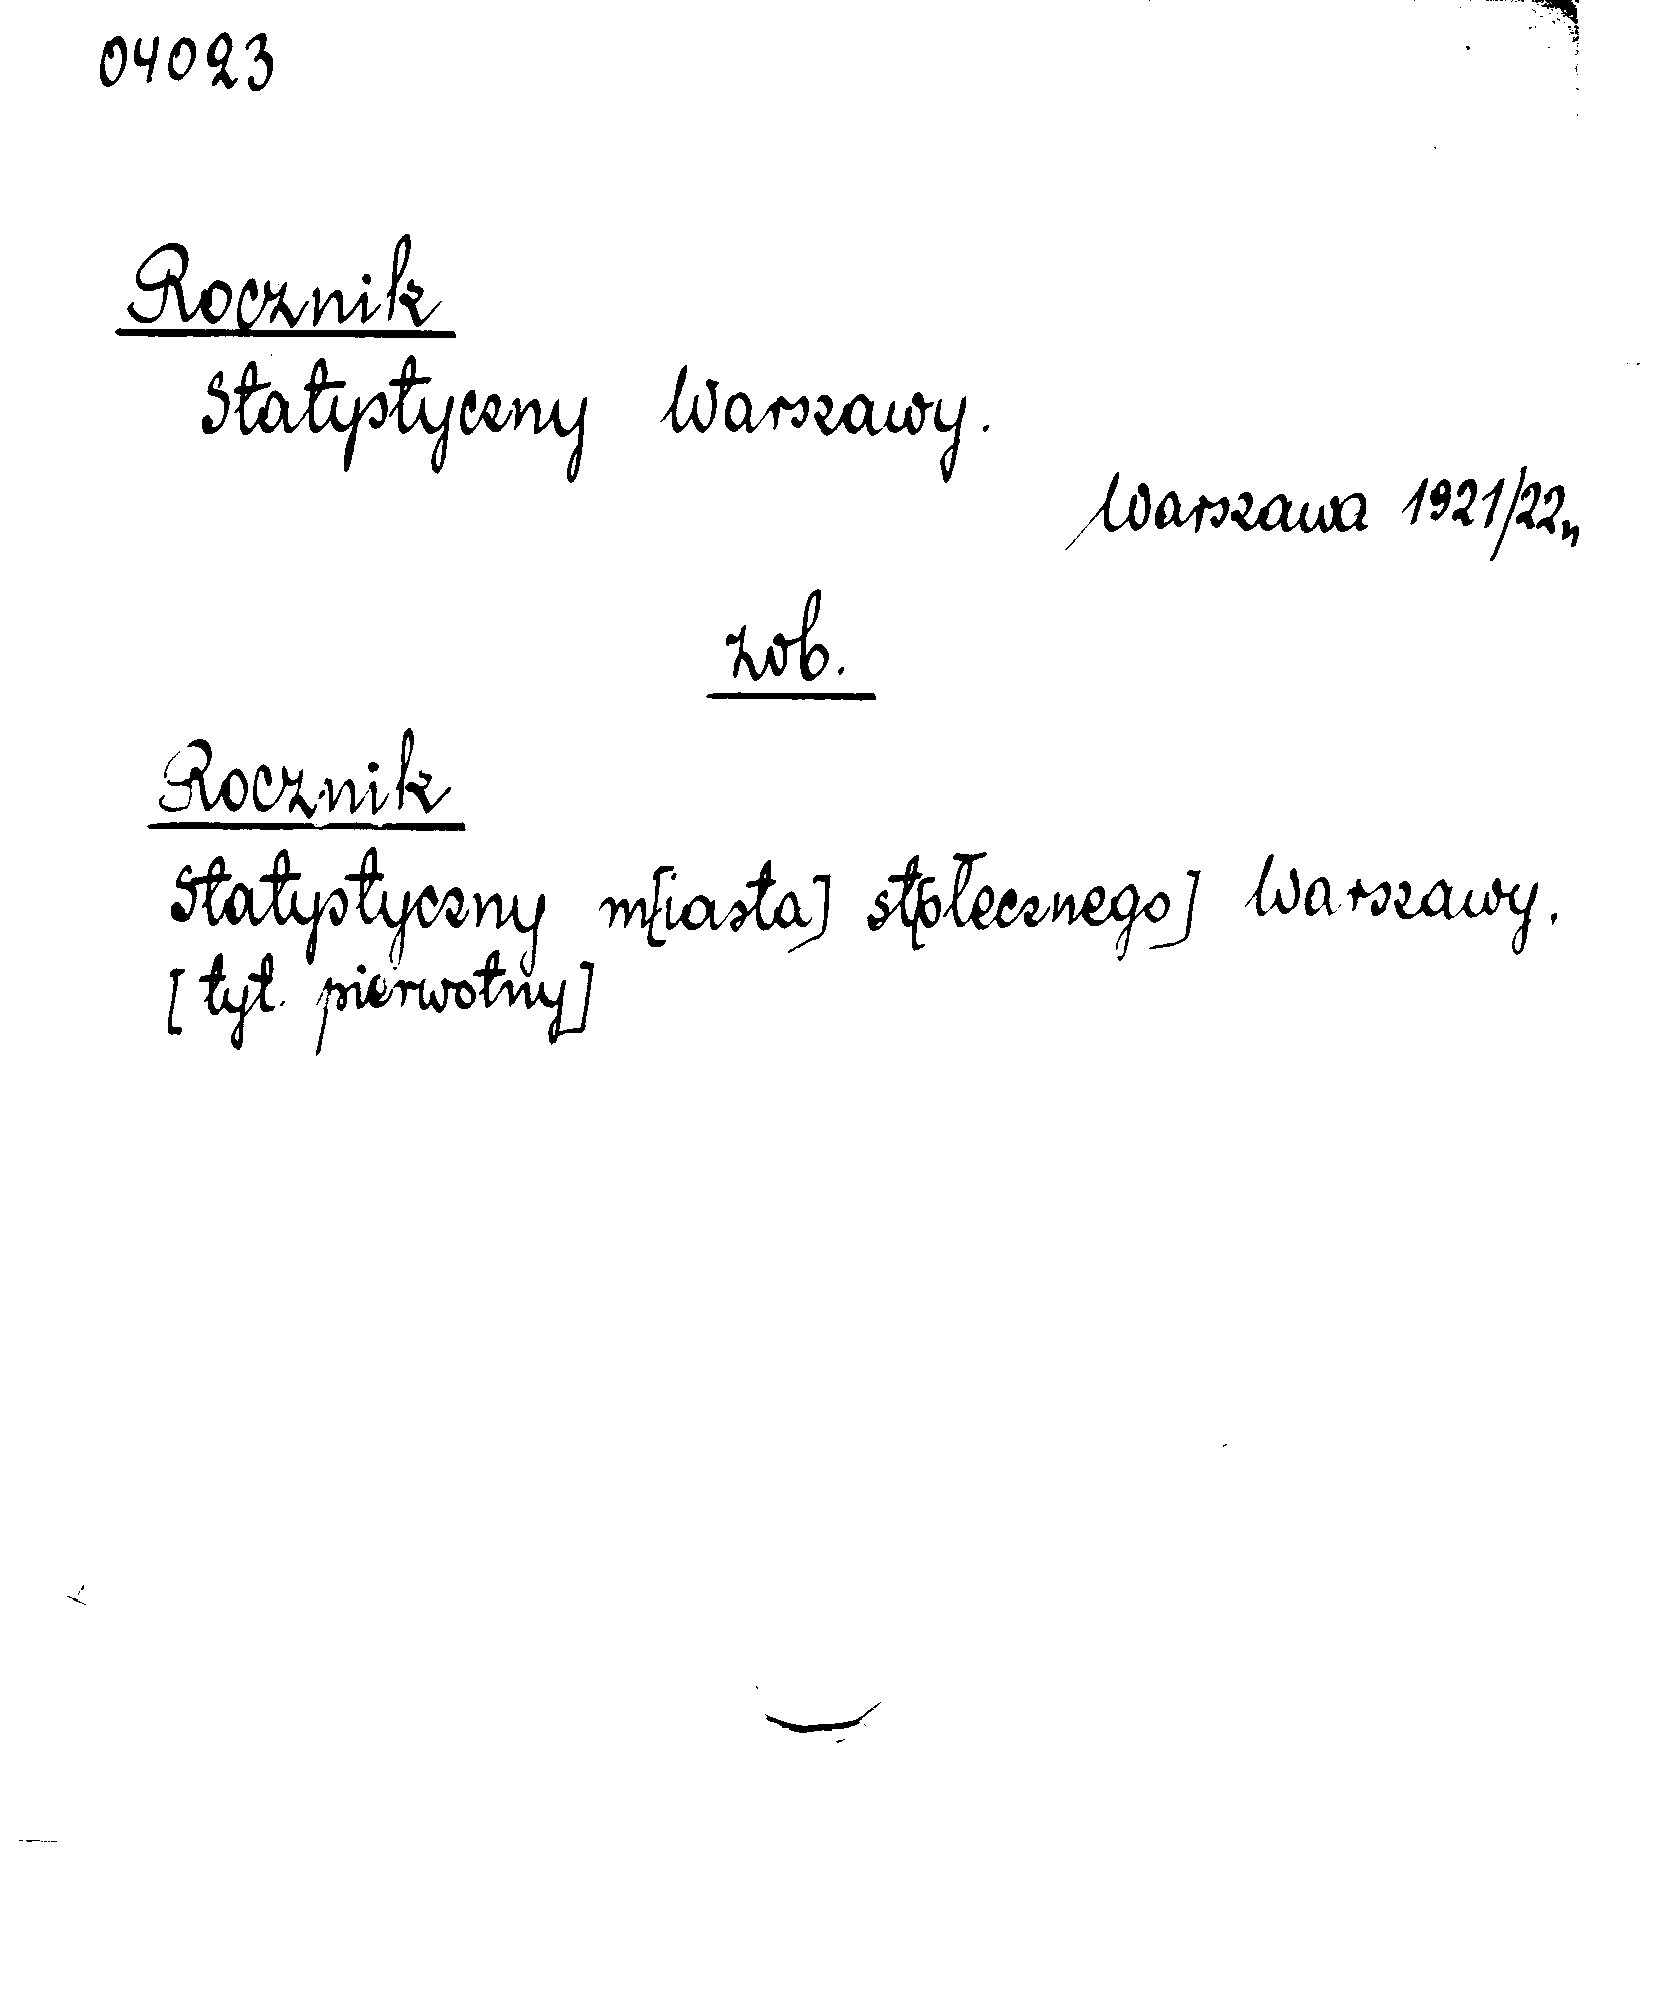 04023
Rocznik
Statystyczny Warszawy.
Warszawa 1921/22„
zob.
Rocznik
Statystyczny m[iasta] st[ołecznego] Warszawy.
[tyt. pierwotny]